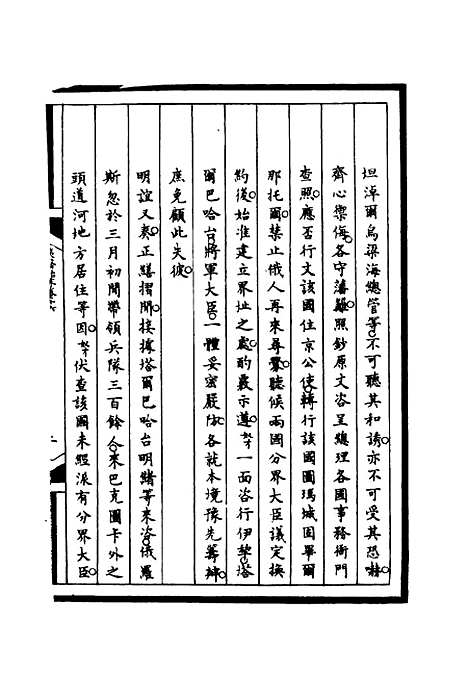 坦淖爾烏梁海總管等。不可聽其和誘。亦不可受其恐嚇。
齊心禦侮。各守藩籬。照鈔原文咨呈總理各國事務衙門
查照。應否行文該國住京公使。轉行該國圖瑪城固畢爾
那托爾。禁止俄人再來尋釁。聽候兩國分界大臣議定換
約後。始准建立界址之處。酌覈示遵。奴才一面咨行伊犂。塔
爾巴哈台將軍大臣。一體妥密嚴防。各就本境豫先籌辦。
庶免顧此失彼。
明誼又奏。正繕摺間。接據塔爾巴哈台明緒等來咨。俄羅
斯忽於三月初間帶領兵隊三百餘人。來巴克圖卡外之
頭道河地方居住等因。奴才伏查該國未經派有分界大臣。